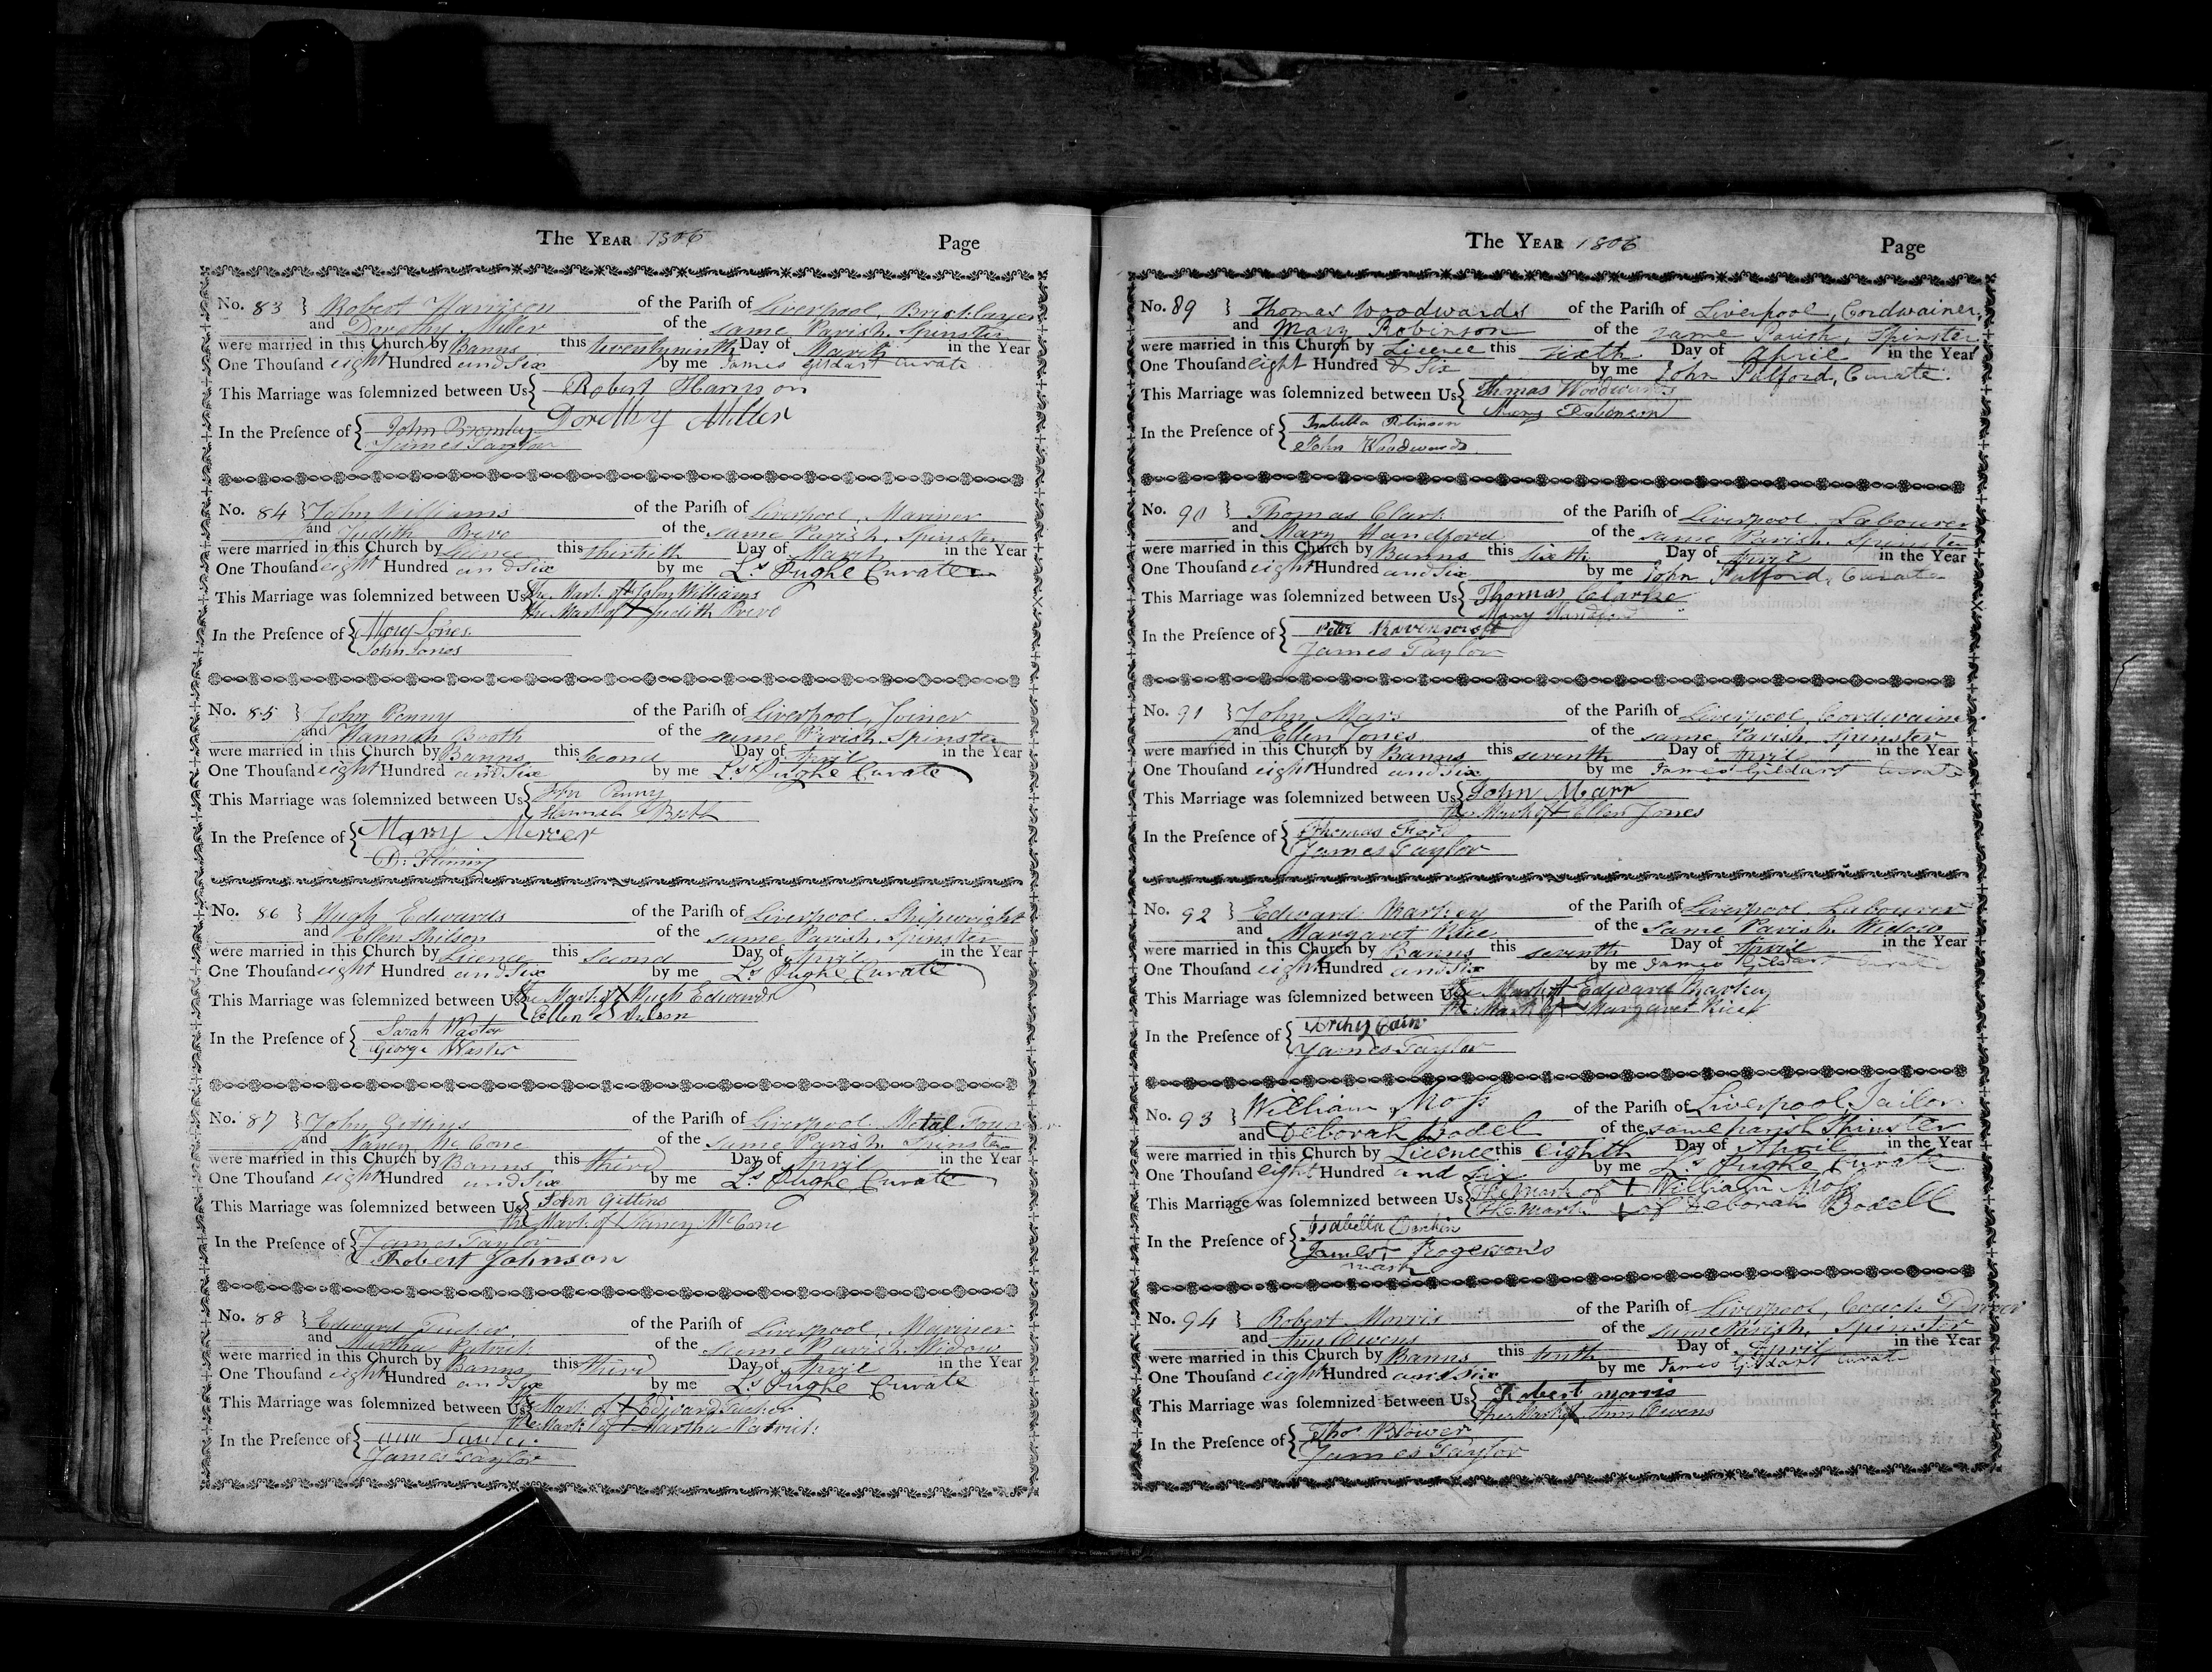 The Year 1806 Page
No. 83 } Robert Harrison of the Pariſh of Liverpool, Bricklayer
and Dorothy Miller of the same Parish, Spinster
were married in this Church by Banns this twentyninth Day of March in the Year
One Thouſand eight Hundred and Six by me James Gildart Curate
This Marriage was ſolemnized between Us { Robert Harrison
Dorothy Miller
In the Preſence of { John Bromley
James Taylor
No. 84 } John Williams of the Pariſh of Liverpool, Mariner
and Judith Prevo of the same Parish, Spinster
were married in this Church by Licence this thirtieth Day of March in the Year
One Thouſand eight Hundred and Six by me Ls. Pughe Curate
This Marriage was ſolemnized between Us { The Mark of + John Williams
The Mark of + Judith Prevo
In the Preſence of { Mary Jones
John Jones
No. 85 } John Penny of the Pariſh of Liverpool, Joiner
and Hannah Booth of the same Parish, Spinster
were married in this Church by Banns this Second Day of April in the Year
One Thouſand eight Hundred and Six by me Ls. Pughe Curate
This Marriage was ſolemnized between Us { John Penny
Hannah
In the Preſence of { Mary Mercer
D: Fleming
No. 86 } Hugh Edwards of the Pariſh of Liverpool, Shipwright
and Ellen of the same Parish, Spinster
were married in this Church by Licence this Second Day of April in the Year
One Thouſand eight Hundred and Six by me Ls. Pughe Curate
This Marriage was ſolemnized between Us { The Mark of X Hugh Edwards
Ellen
In the Preſence of { Sarah
George
No. 87 } John Gittins of the Pariſh of Liverpool, Metal
and Nancy McCone of the same Parish, Spinster
were married in this Church by Banns this third Day of April in the Year
One Thouſand eight Hundred and Six by me Ls. Pughe Curate
This Marriage was ſolemnized between Us { John Gittins
The Mark of + Nancy McCone
In the Preſence of { James Taylor
Robert Johnson
No. 88 } Edward Tucker of the Pariſh of Liverpool, Mariner
and Martha Patrick of the same Parish, Widow
were married in this Church by Banns this third Day of April in the Year
One Thouſand eight Hundred and Six by me Ls. Pughe Curate
This Marriage was ſolemnized between Us { The Mark of + Edward Tucker
The Mark of + Martha Patrick
In the Preſence of { Ann
James Taylor
The Year 1806 Page
No. 89 } Thomas Woodwards of the Pariſh of Liverpool, Cordwainer,
and Mary Robinson of the same Parish, Spinster
were married in this Church by Licence this sixth Day of April in the Year
One Thouſand eight Hundred & Six by me John Pulford, Curate.
This Marriage was ſolemnized between Us { Thomas Woodwards
Mary Robinson
In the Preſence of { Isabella Robinson
John Woodwards
No. 90 } Thomas Clark of the Pariſh of Liverpool, Labourer
and Mary Handford of the same Parish, Spinster
were married in this Church by Banns this Sixth Day of April in the Year
One Thouſand eight Hundred and Six by me John Pulford, Curate
This Marriage was ſolemnized between Us { Thomas Clarke
Mary Handford
In the Preſence of { Peter Ravenscroft
James Taylor
No. 91 } John Mars of the Pariſh of Liverpool, Cordwainer
and Ellen Jones of the same Parish, Spinster
were married in this Church by Banns this seventh Day of April in the Year
One Thouſand eight Hundred and Six by me James Gildart Curate
This Marriage was ſolemnized between Us { John Marr
The Mark of + Ellen Jones
In the Preſence of { Thomas
James Taylor
No. 92 } Edward Markey of the Pariſh of Liverpool, Labourer
and Margaret Rice of the same Parish, Widow
were married in this Church by Banns this seventh Day of April in the Year
One Thouſand eight Hundred and Six by me James Gildart Curate
This Marriage was ſolemnized between Us { The Mark of + Edward Markey
The Mark of + Margaret Rice
In the Preſence of { Archy Cain
James Taylor
No. 93 } William Moſs of the Pariſh of Liverpool, Tailor
and Deborah Bodel of the same parish Spinster
were married in this Church by Licence this eighth Day of April in the Year
One Thouſand eight Hundred and Six by me Ls. Pughe Curate
This Marriage was ſolemnized between Us { The Mark of + William Moſs
The Mark + of Deborah Bodell
In the Preſence of { Isabella
James + Rogerson's
mark
No. 94 } Robert Morris of the Pariſh of Liverpool, Coach Driver
and Ann Owens of the same Parish, Spinster
were married in this Church by Banns this tenth Day of April in the Year
One Thouſand eight Hundred and Six by me James Gildart Curate
This Marriage was ſolemnized between Us { Robert morris
The Mark of X Ann Owens
In the Preſence of { Thos Blower
James Taylor